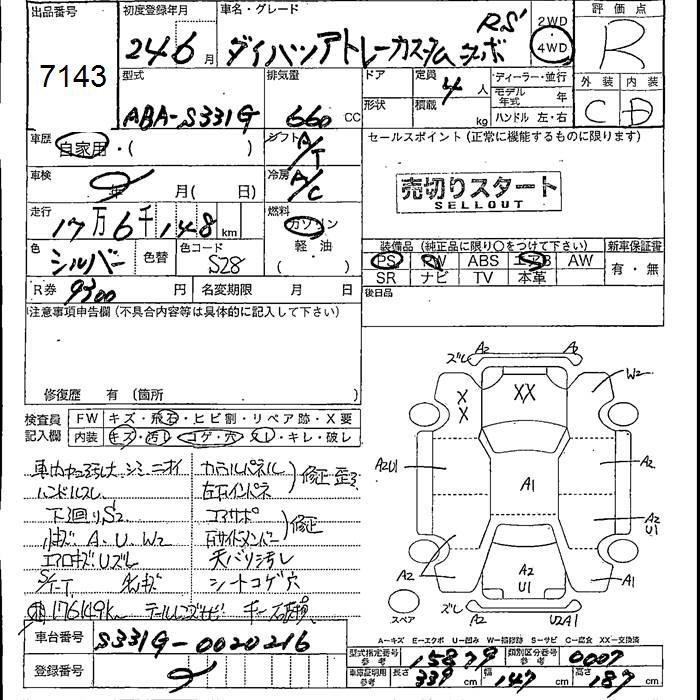 出品番号
7143
初度登録年月
24 6 月
車名・グレード
ダイハツアトレーカスタム ターボ RS
2WD
4WD
評価点
R
型式
ABA-S331G
排気量
660 CC
ドア
形状
定員 4 人
積載 kg
ディーラー・並行
モデル年式 年
ハンドル 左・右
外装 内装
C D
車歴
自家用・( )
シフト
A/T
セールスポイント (正常に機能するものに限ります)
売切りスタート
SELLOUT
車検
年 月( 日)
冷房
A/C
走行
17万6千148km
燃料
ガソリン
軽・油
( )
色
シルバー
色替
色コード
S28
装備品 (純正品に限り〇をつけて下さい)
新車保証書
PS PW ABS エアB AW
SR ナビ TV 本革
有・無
R券 9300 円
名変期限 月 日
後日品
注意事項申告欄(不具合内容等は具体的に記入して下さい)
修復歴 有 (箇所 )
検査員
記入欄
FW キズ・飛石・ヒビ割・リペア跡・X要
内装 キズ・汚レ・コゲ・穴・スレ・キレ・破レ
シミ ニオイ
ハンドルスレ
下廻りS2
A.U.W2
エアロキズUズレ
カウルパネル
左右インパネ
修正 歪
コアサポ
右サイドメンバー
修正
天バリ汚レ
シートコゲ穴
176149km
テールレンズサビ
ズレ A2 A2
XX
X
X
W2
A2U1
A1
A2
A2
U1
A2
U1
A2
A1
ズレ A2 U2A1
スペア
A-キズ E-エクボ U-凹み W-補修跡 S-サビ C-腐食 XX-交換済
車台番号
S331G-0020216
登録番号
型式指定番号
参考
15879
類別区分番号
参考
0007
車庫証明用
参考
長さ 339 cm
幅 147 cm
高さ 187 cm